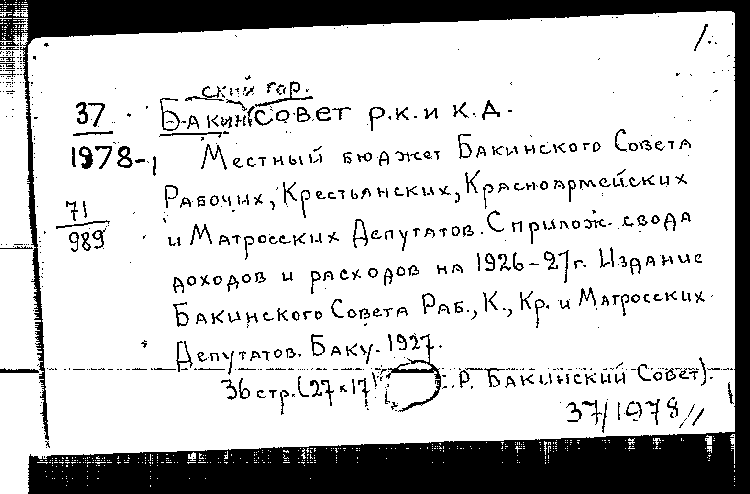 1.
ский гор.
37 Бакинсовет Р.К. и К.Д.
1978-1 Местный бюджет Бакинского Совета
Рабочих, Крестьянских, Красноармейских
71
989 и Матросских Депутатов. С прилож. свода
доходов и расходов на 1926-27г. Издание
Бакинского Совета Раб., К., Кр. и Матросских
Депутатов. Баку. 1927.
36 стр. (27×17) .Р. Бакинский Совет).
37/1978//